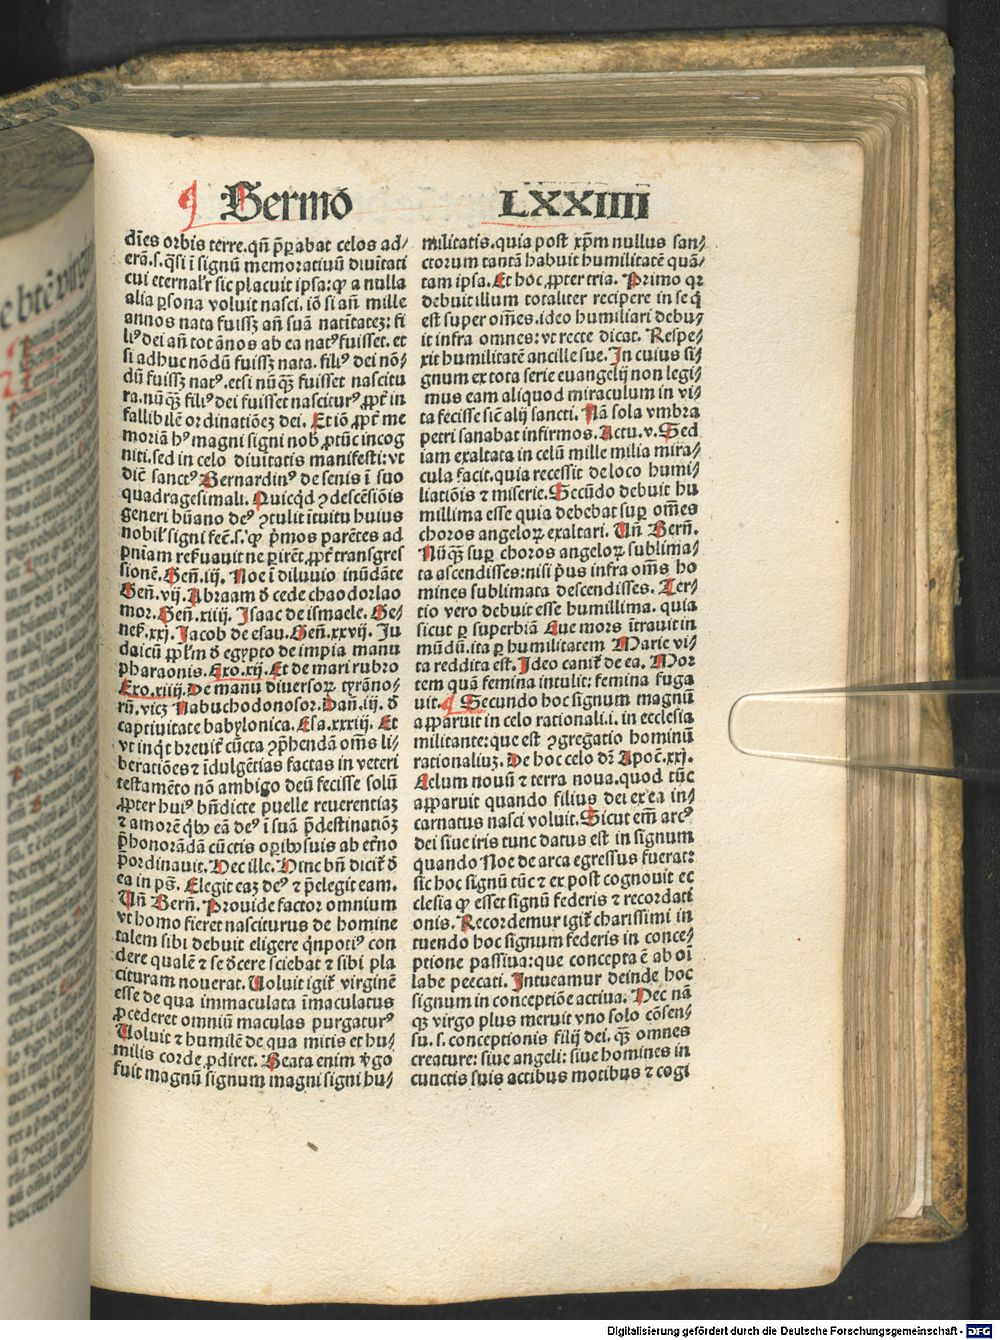 Sermō LXXIIII
dīes orbis terre. qn̄ p̄parabat celos ad⸗
erā. s. qͣsi ī signū memoratiuū diuītati
cui eternalr̄ sic placuit ipsa: ꝙ a nulla
alia ꝑsona voluit nasci. iō si an̄ mille
annos nata fuissꝫ an̄ suā natītateꝫ: fi
liꝰ dei an̄ tot ānos ab ea natꝰ fuisset. et
si adhuc nōdū fuissꝫ nata. filiꝰ dei nō⸗
dū fuissꝫ natꝰ. etsi nūqͣꝫ fuisset nascitu
ra. nūqͣꝫ filiꝰ dei fuisset nasciturꝰ ꝓpt̄ in
fallibilē ordinatiōeꝫ dei. Et iō ꝓpt̄ me
moriā hꝰ magni signi nob̄ ꝓtūc incog
niti. sed in celo diuītatis manifesti: vt
dic̄ sanctꝰ Bernardinꝰ de senis ī suo
quadragesimali. Quicqͥd ꝯdescēsiōis
generi hūano deꝰ ꝯtulit ītuitu huius
nobil̄ signi fec̄. s. ꝙ pͥmos parētes ad
pn̄iam reẜuauit ne ꝑirēt ꝓpt̄ transgres
sionē. Gen̄. iij. Noe ī diluuio inūdāte
Gen̄. vij. Abraam d̄ cede chaodorlao
mor. Gen̄. xiiij. Isaac de ismaele. Ge⸗
neẜ. xxj. Jacob de esau. Gen̄. xxvij. Ju
daicū ppl̄m d̄ egypto de impia manu
pharaonis. Exo. xij. Et de mari rubro
Exo. xiiij. De manu diuersoꝝ tyrāno⸗
rū. vicꝫ Nabuchodonosor. Dan̄. iij. d̄
captiuitate babylonica. Esa. xxxiij. Et
vt inqͥt breuit̄ cūcta ꝯp̄hendā oēms li⸗
beratiōes ⁊ īdulgētias factas in veteri
testamēto nō ambigo deū fecisse solū
ꝓpter huiꝰ bn̄dicte puelle reuerentiaꝫ
⁊ amorē qͥbꝰ eā deꝰ ī sua p̄destinatiōꝫ
p̄honorādā cūctis oꝑibꝰ suis ab et̄no
p̄ordinauit. Hec ille. Hinc bn̄ dicit̄ d̄
ea in ps̄. Elegit eaꝫ deꝰ ⁊ p̄elegit eam.
Vn̄ Bern̄. Prouide factor omnium
vt homo fieret nasciturus de homine
talem sibi debuit eligere qͥnpotiꝰ con
dere qualē ⁊ se d̄cere sciebat ⁊ sibi pla
cituram nouerat. Uoluit igit̄ virginē
esse de qua immaculata īmaculatus
ꝓcederet omniū maculas purgaturꝰ
Uoluit ⁊ humilē de qua mitis et hu⸗
milis corde ꝓdiret. Beata enim v̄go
fuit magnū signum magni signi hu⸗
militatis. quia post xp̄m nullus san⸗
ctorum tantā habuit humilitatē quā⸗
tam ipsa. Et hoc ꝓpter tria. Primo qꝛ
debuit illum totaliter recipere in se q̄
est super om̄es. ideo humiliari debu⸗
it infra omnes: vt recte dicat. Respe⸗
xit humilitatē ancille sue. In cuius si⸗
gnum ex tota serie euangelij non legi⸗
mus eam aliquod miraculum in vi⸗
ta fecisse sic̄ alij sancti. Nā sola vmbra
petri sanabat infirmos. Actu. v. Sed
iam exaltata in celū mille milia mira⸗
cula facit. quia recessit de loco humi⸗
liatiōis ⁊ miserie. Secūdo debuit hu
millima esse quia debebat suꝑ om̄es
choros angeloꝝ exaltari. Un̄ Bern̄.
Nūqͣꝫ suꝑ choros angeloꝝ sublima⸗
ta ascendisses: nisi pͥus infra om̄s ho
mines sublimata descendisses. Ter⸗
tio vero debuit esse humillima. quia
sicut ꝑ superbiā Eue mors ītrauit in
mūdū. ita ꝑ humilitatem Marie vi⸗
ta reddita est. Ideo canit̄ de ea. Mor
tem quā femina intulit: femina fuga
uit. Secundo hoc signum magnū
apparuit in celo rationali. i. in ecclesia
militante: que est ꝯgregatio hominū
rationaliuꝫ. De hoc celo dr̄. Apoc̄. xxj.
Celum nouū ⁊ terra noua. quod tūc
apparuit quando filius dei ex ea in⸗
carnatus nasci voluit. Sicut em̄ arcꝰ
dei siue iris tunc datus est in signum
quando Noe de arca egressus fuerat:
sic hoc signū tūc ⁊ ex post cognouit ec
clesia ꝙ esset signū federis ⁊ recordati
onis. Recordemur igit̄ charissimi in
tuendo hoc signum federis in conce⸗
ptione passiua: que concepta ē ab oī
labe peccati. Intueamur deinde hoc
signum in conceptiōe actiua. Hec nā
qꝫ virgo plus meruit vno solo cōsen⸗
su. s. conceptionis filij dei. qͣꝫ omnes
creature: siue angeli: siue homines in
cunctis suis actibus motibus ⁊ cogi
Digitalisierung gefördert durch die Deutsche Forschungsgemeinschaft - DFG